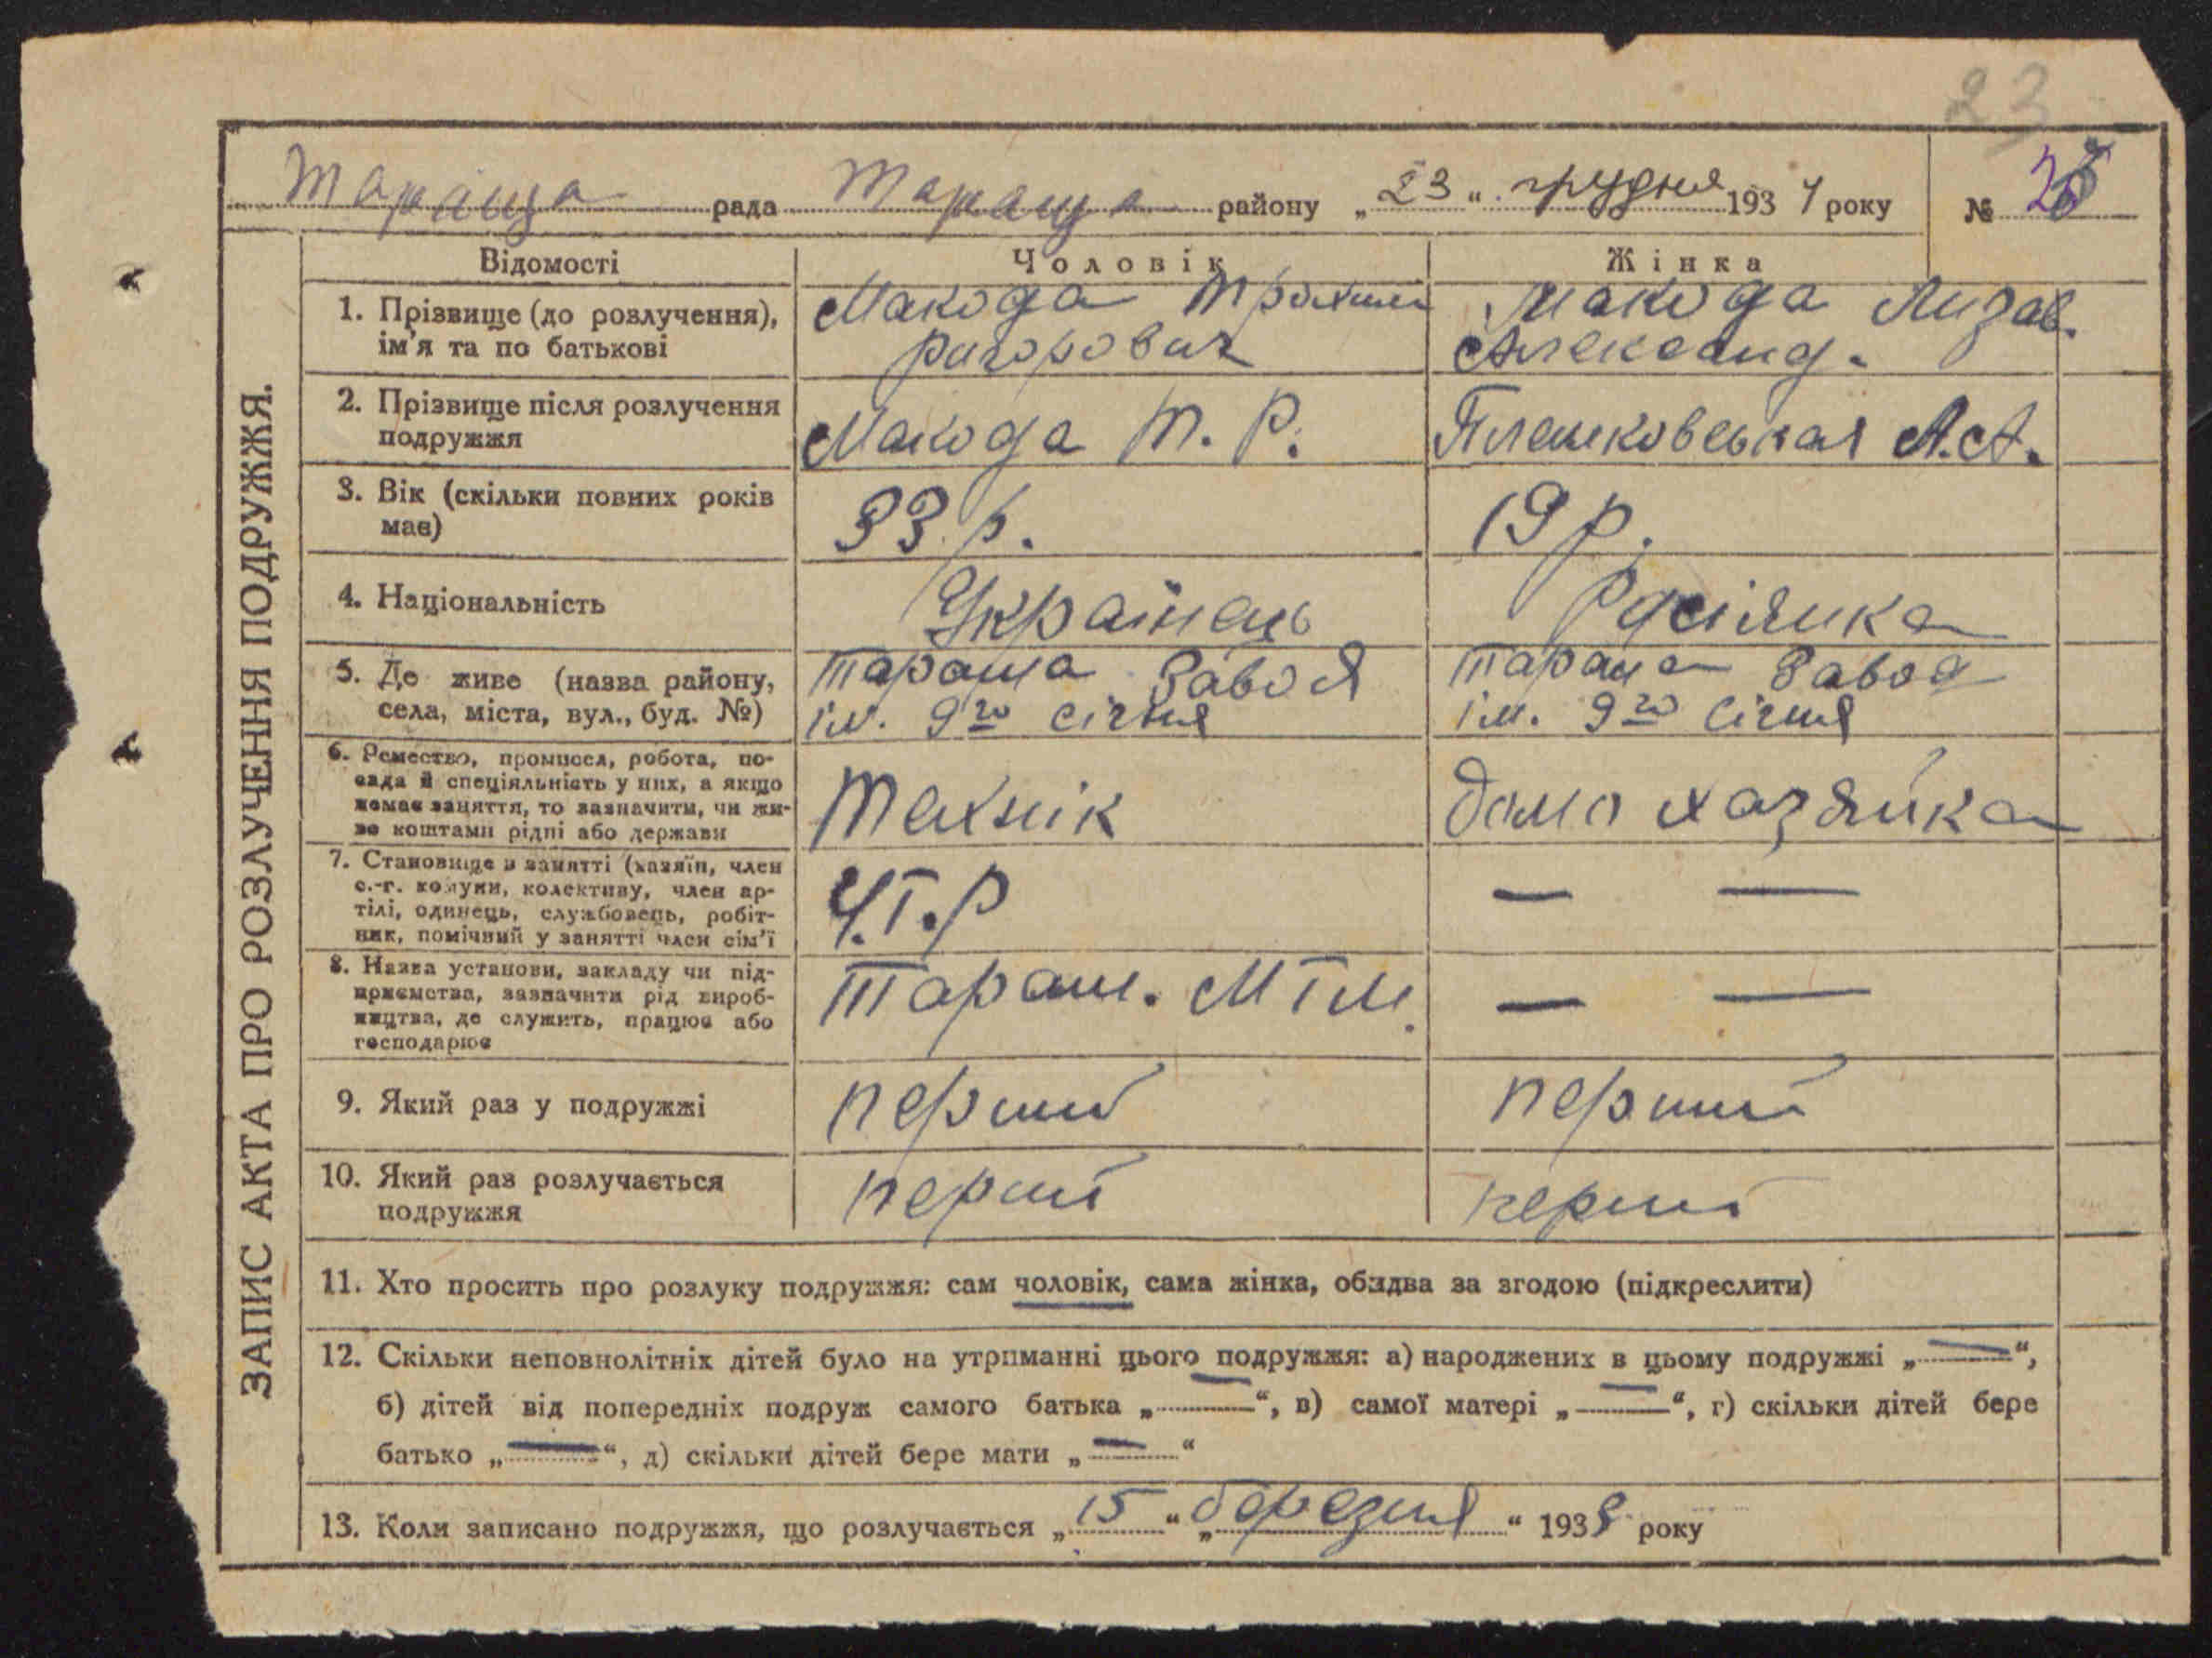 23
Тараща рада Тараща району „23“ грудня 1934 року № 25
ЗАПИС АКТА ПРО РОЗЛУЧЕННЯ ПОДРУЖЖЯ.
Відомості Чоловік Жінка
1. Прізвище (до розлучення), ім'я та по батькові
Макода Трохим
Ригорович
Макода Лизав.
Александ.
2. Прізвище після розлучення
подружжя
Макода Т. Р.
Плешковеькая Л.А.
3. Вік (скільки повних років
має)
33 р.
19 р.
4. Національність
Українець
Росіянка
5. Де живе (назва району,
села, міста, вул., буд. №)
Тараща Завод
ім. 9го січня
Тараща Завод
ім. 9го Січня
6. Ремество, промисел, робота, по-
сада й спеціяльність у них, а якщо
немає заняття, то зазначити, чи жи-
ве коштами рідні або держави
Технік
домо хазяйка
7. Становище в занятті (хазяїн, член
с.-г. комуни, колективу, член ар-
тілі, одинець, службовець, робіт-
ник, помічний у занятті член сім'ї
— —
8. Назва установи, закладу чи під-
приємства, зазначити рід вироб-
ництва, де служить, працює або
господарює
Таращ.
— —
9. Який раз у подружжі
перший
перший
10. Який раз розлучається
подружжя
перший
перший
11. Хто просить про розлуку подружжя: сам чоловік, сама жінка, обидва за згодою (підкреслити)
12. Скільки неповнолітніх дітей було на утриманні цього подружжя: а) народжених в цьому подружжі „—“,
б) дітей від попередніх подруж самого батька „—“, в) самої матері „—“, г) скільки дітей бере
батько „—“, д) скільки дітей бере мати „—“
13. Коли записано подружжя, що розлучається „15“ „березня“ 193 року